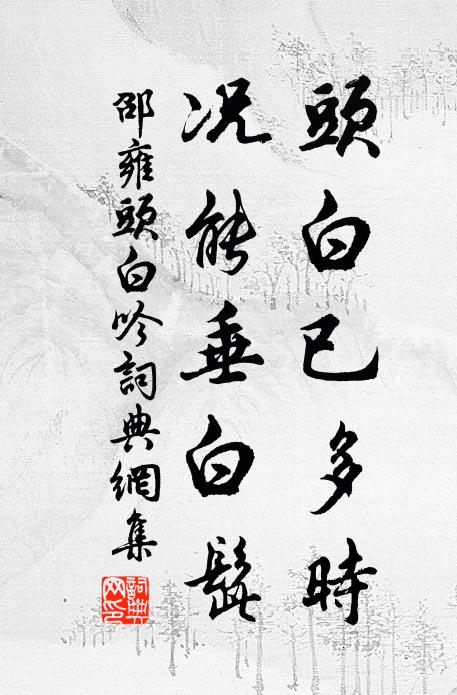 頭白已多時
況能垂白髭
邵雍頭白吟詞典網集
詞典
網印